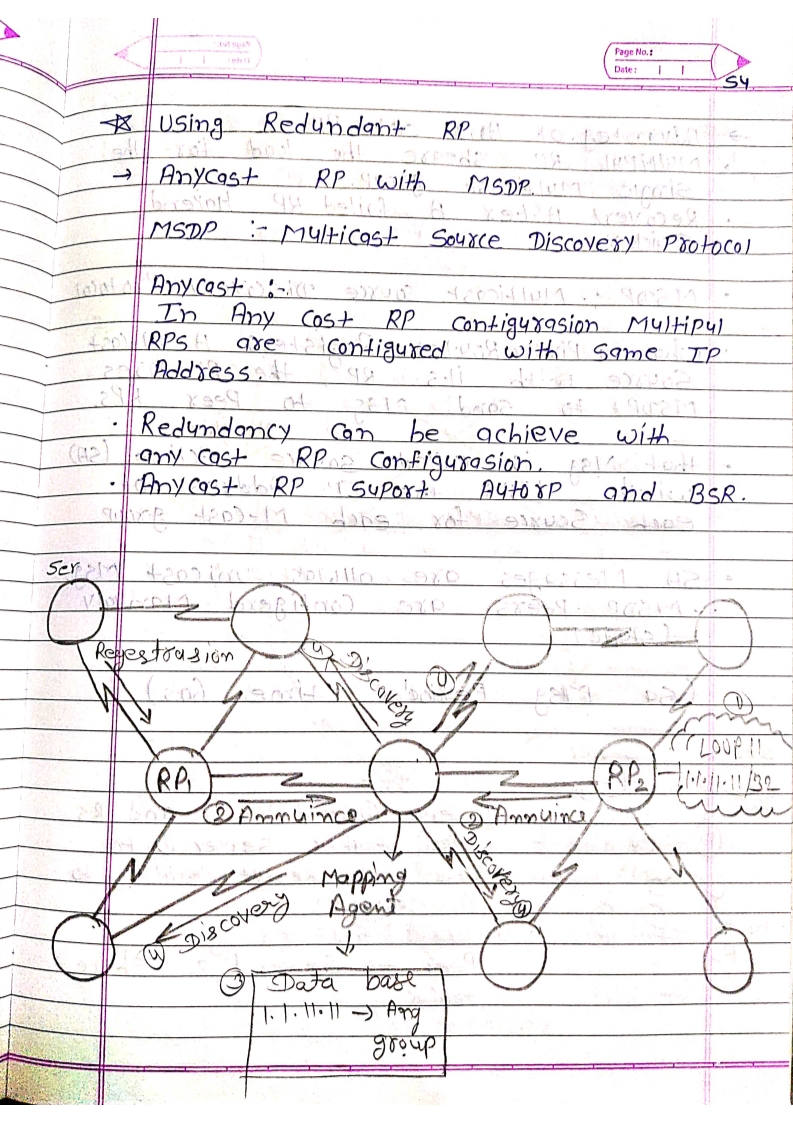 Page No.:
Date:
54
Using Redundant RP
→ Anycast RP with MSDP.
MSDP :- Multicast Source Discovery Protocol
Anycast :-
In Any Cost RP Configurasion Multipul
RPs are configured with same IP
Address.
· Redundancy can be achieve with
any cast RP configurasion.
· Anycast RP suport AutorP and BSR.
Ser
Regestrasion
④ Discovery
④
①
LOOP 11
1.1.11.11/32
RP1
RP2
② Annuince
② Annuince
Discovery ④
Mapping
Agent
④ Discovery
③ Data base
1.1.11.11 → Any
group